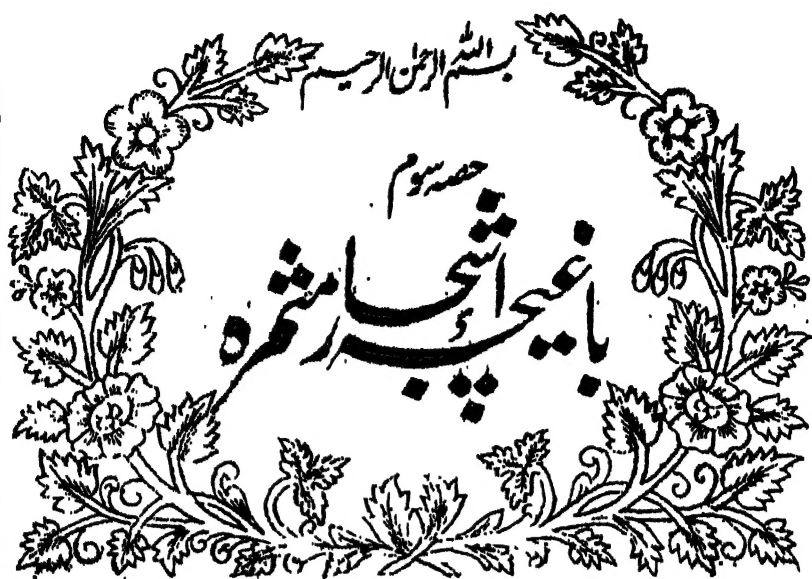 بسم اللہ الرحمٰن الرحیم
حصہ سوم
باغیچۂ اشجار مثمرہ